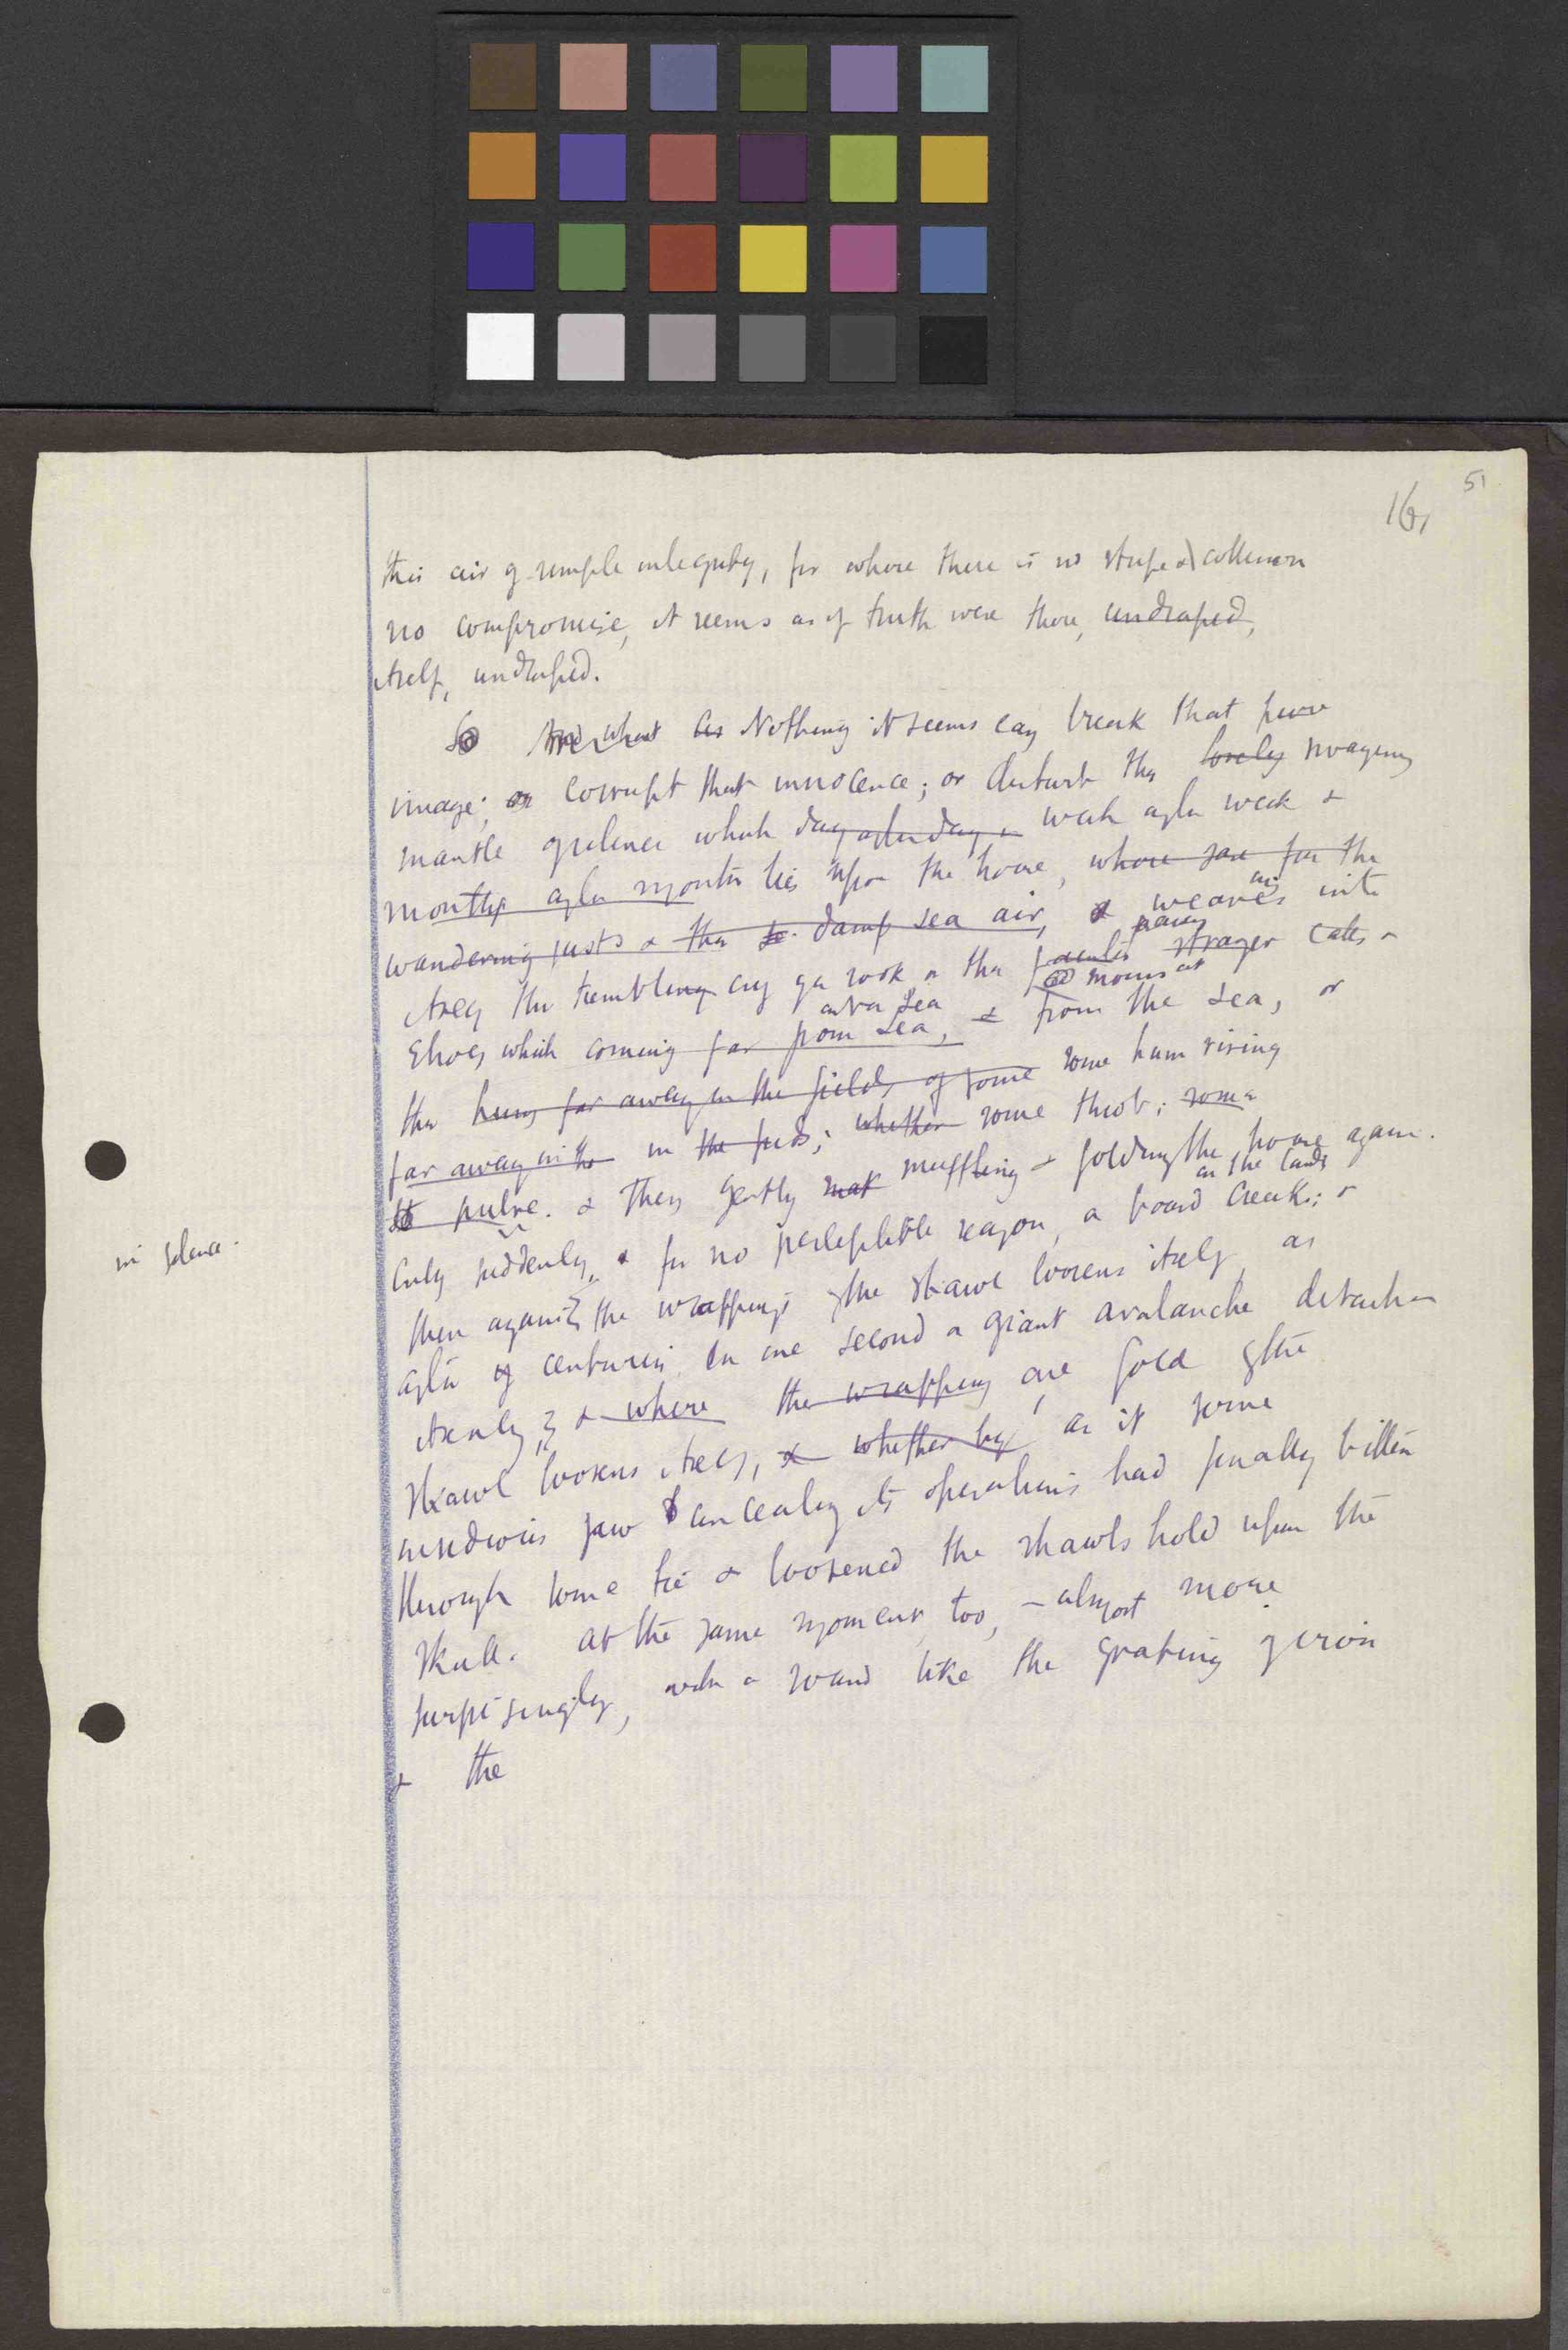 51
161
this air of simple integrity, for where there is no strife & collision
no compromise, it seems as if truth were there, undraped,
itself, undraped.
So And what can Nothing it seems can break that pure
image; or corrupt that innocence; or disturb the lovely swaying
mantle of silence which day after day in week after week &
month after month lies upon the house, where save for the
wandering gusts & the damp sea air, & weaves into
itself the trembling cry of a rook or the stranger calls &
Echoes which coming far from sea, & from the sea, or
out at sea
the hum far away in the fields of some some hum rising
far away in the in the fields; whether some throb; some
pulse. & then gently muffling & folding the house again.
in silence.
Only suddenly, & for no perceptible reason, a board creaks;
on the landing
then again the wrappings of the shawl loosens itself, as
after of centuries in one second a giant avalanche detaches
itself, & where the wrapping one fold of the
shawl loosens itself, & whether by as if some
jaw concealing its operations had finally bitten
through some tie & loosened the shawls hold upon the
skull. at the same moment, too, – almost more
surprisingly, with a sound like the grating of iron
& the